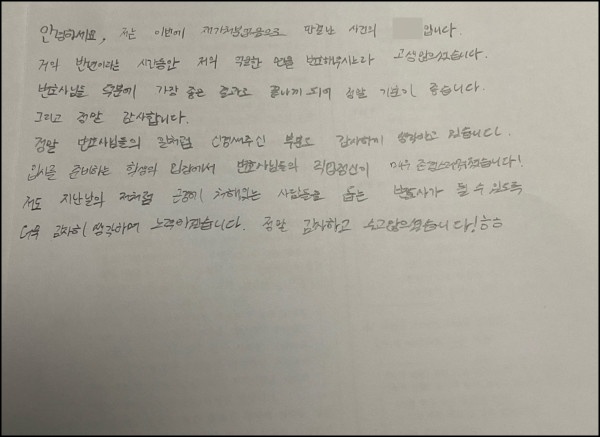 안녕하세요, 저는 이번에 재기처분으로 마무된 사건의 입니다.
거의 반년이라는 시간동안 저의 억울한 면을 변호해주시느라 고생많으셨습니다.
변호사님들 덕분에 가장 좋은 결과로 끝나게 되어 정말 기분이 좋습니다.
그리고 정말 감사합니다.
정말 변호사님들의 일처럼 신경써주신 부분도 감사하게 생각하고 있습니다.
입시를 준비하는 학생의 입장에서 변호사님들의 직업정신이 매우 존경스러워졌습니다!
저도 지난날의 저처럼 곤경에 처해있는 사람들을 돕는 변호사가 될 수 있도록
더욱 감사히 생각하며 노력하겠습니다. 정말 감사하고 수고많으셨습니다!ㅎㅎ